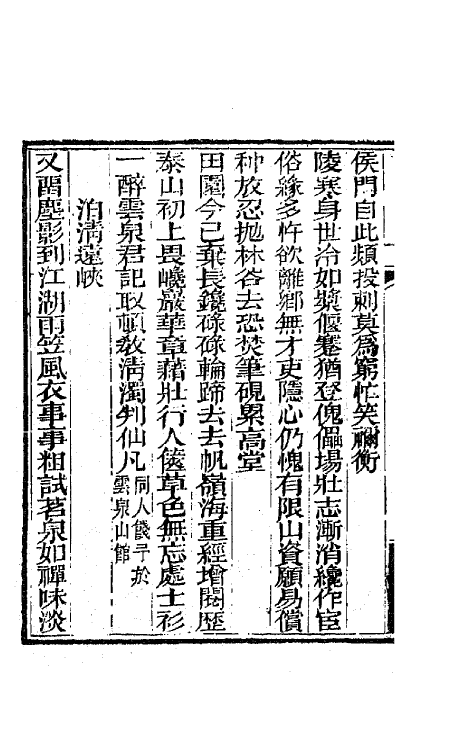 侯門自此頻投刺莫爲窮忙笑禰衡
陵寒身世冶如漿偃蹇猶登傀儡場壯志漸消纔作宦
俗緣多忤欲離鄉無才吏隱心仍愧有限山資願易償
种放忍拋林谷去恐焚筆硯累高堂
田園今已棄長鑱碌碌輪蹄去去帆嶺海重經增閱歷
泰山初上畏巉巖華章藉壯行人篋草色無忘處士衫
一醉雲泉君記取頓教淸濁判仙凡
同人餞予於
雲泉山館
泊淸遠峽
又酉塵影到江湖雨笠風衣事事粗試茗泉如禪味淡